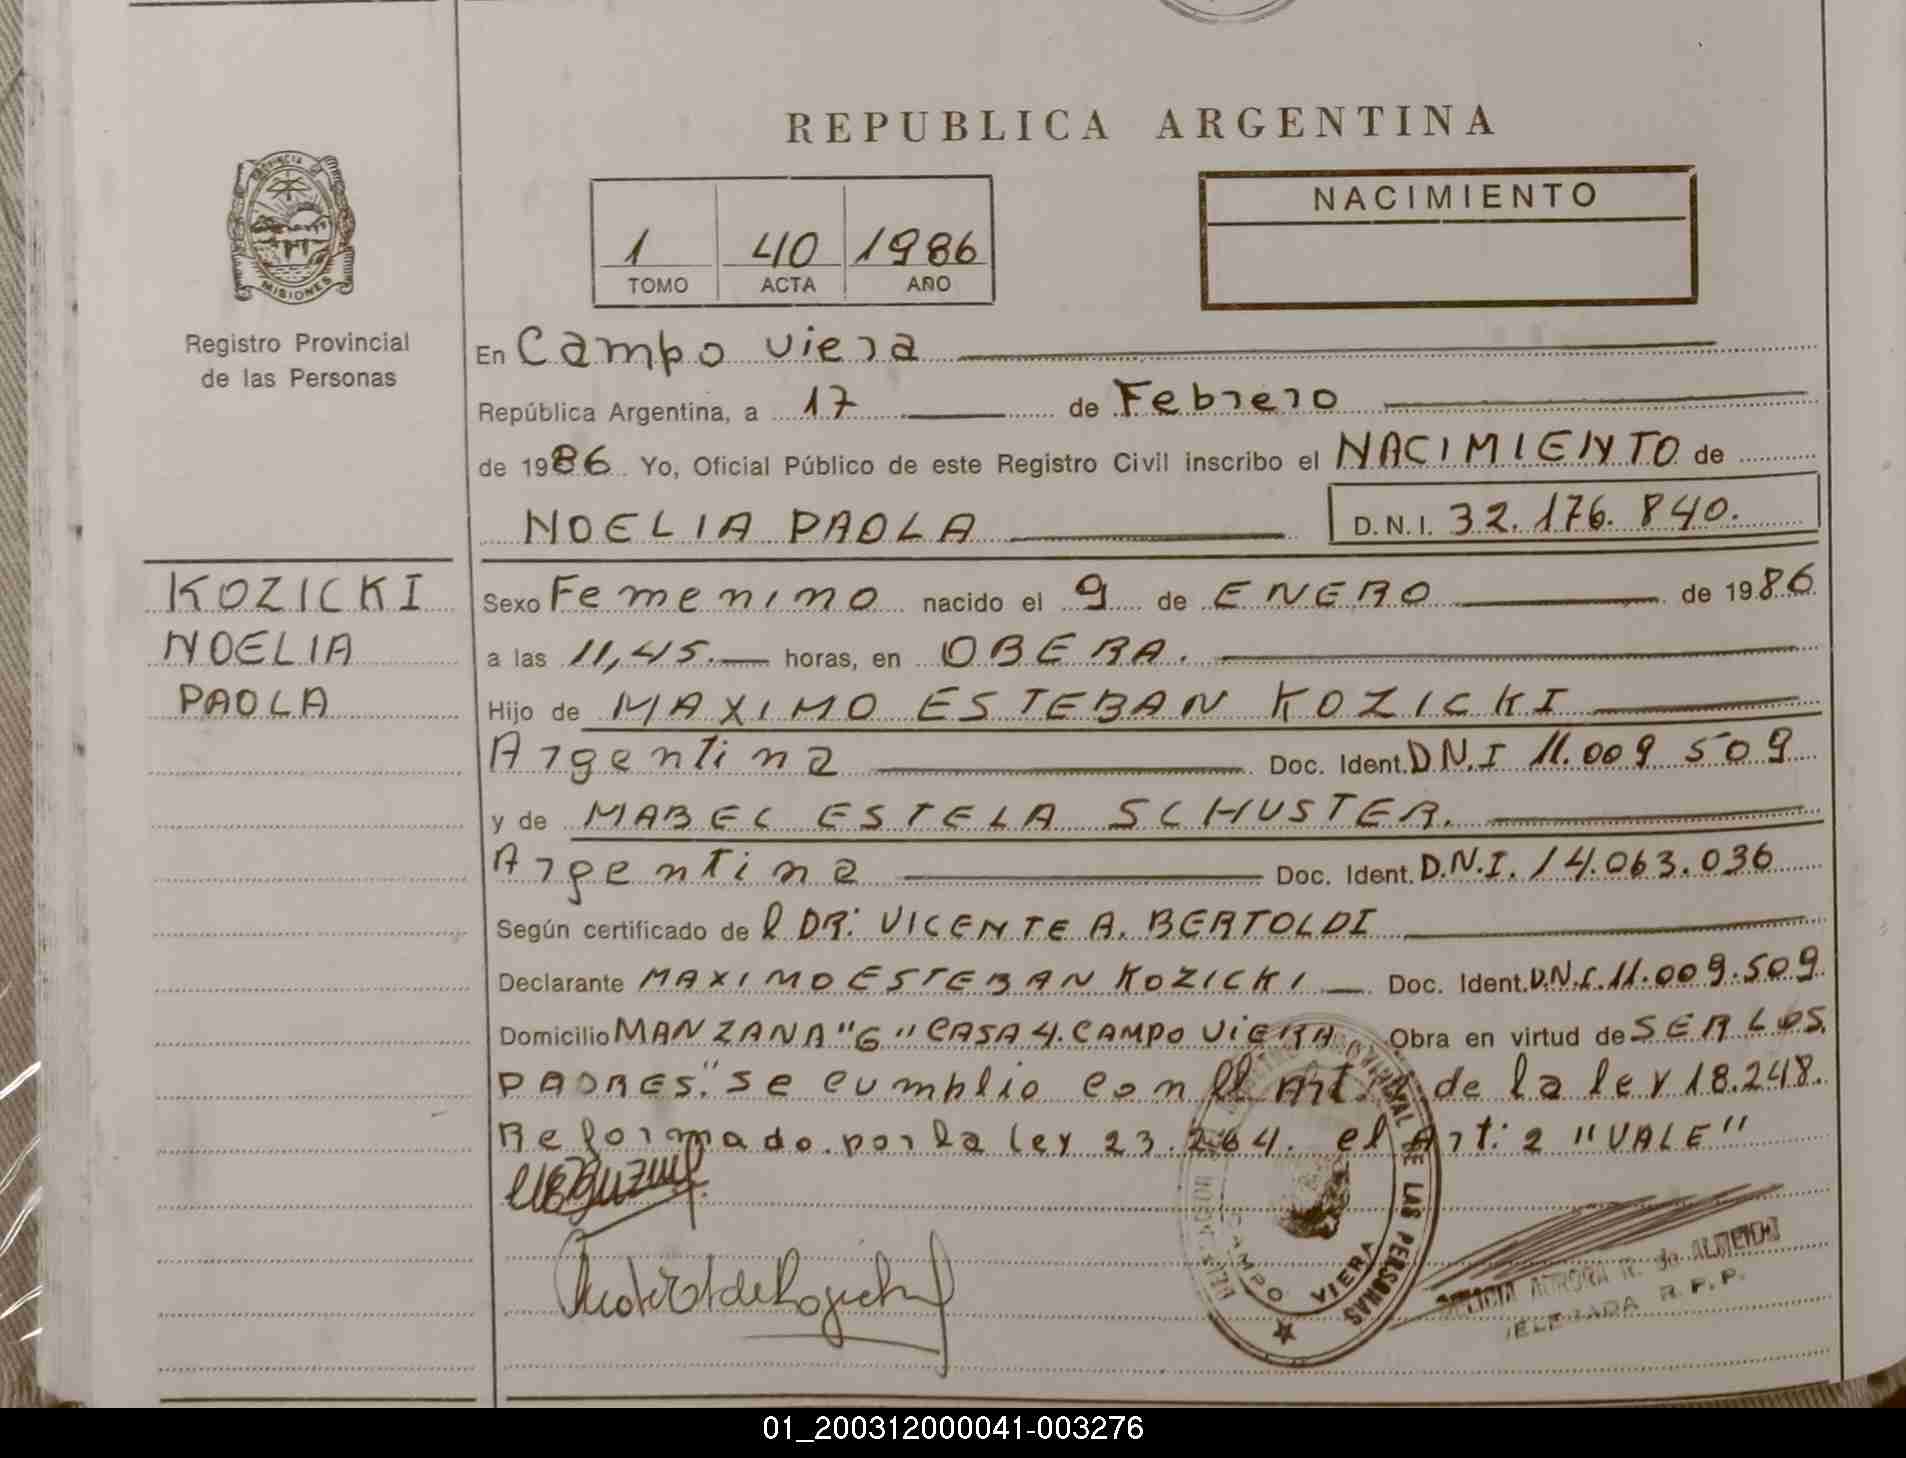 REPUBLICA ARGENTINA
PROVINCIA DE
MISIONES
Registro Provincial
de las Personas
1 40 1986
TOMO ACTA AÑO
NACIMIENTO
En Campo Viera
República Argentina, a 17 de Febrero
de 1986 Yo, Oficial Público de este Registro Civil inscribo el NACIMIENTO de
NOELIA PAOLA D.N.I. 32.176.840.
KOZICKI
NOELIA
PAOLA
Sexo Femenino nacido el 9 de ENERO de 1986
a las 11,45. horas, en OBERA.
Hijo de MAXIMO ESTEBAN KOZICKI
Argentina Doc. Ident. D.N.I 11.009 509
y de MABEL ESTELA SCHUSTER.
Argentina Doc. Ident. D.N.I. 14.063.036
Según certificado de l DR: VICENTE A. BERTOLDI
Declarante MAXIMO ESTEBAN KOZICKI Doc. Ident. D.N.I. 11.009.509
Domicilio MANZANA "G" CASA 4. CAMPO VIERA. Obra en virtud de SER LOS
PADRES." Se cumplio con el Art. de la ley 18.248.
Reformado por la ley 23.264. el Art: 2 "VALE"
PROVINCIAL DE LAS PERSONAS
CAMPO VIERA
AURORA R. de ALMEIDA
DELEGADA R.P.P.
01_200312000041-003276